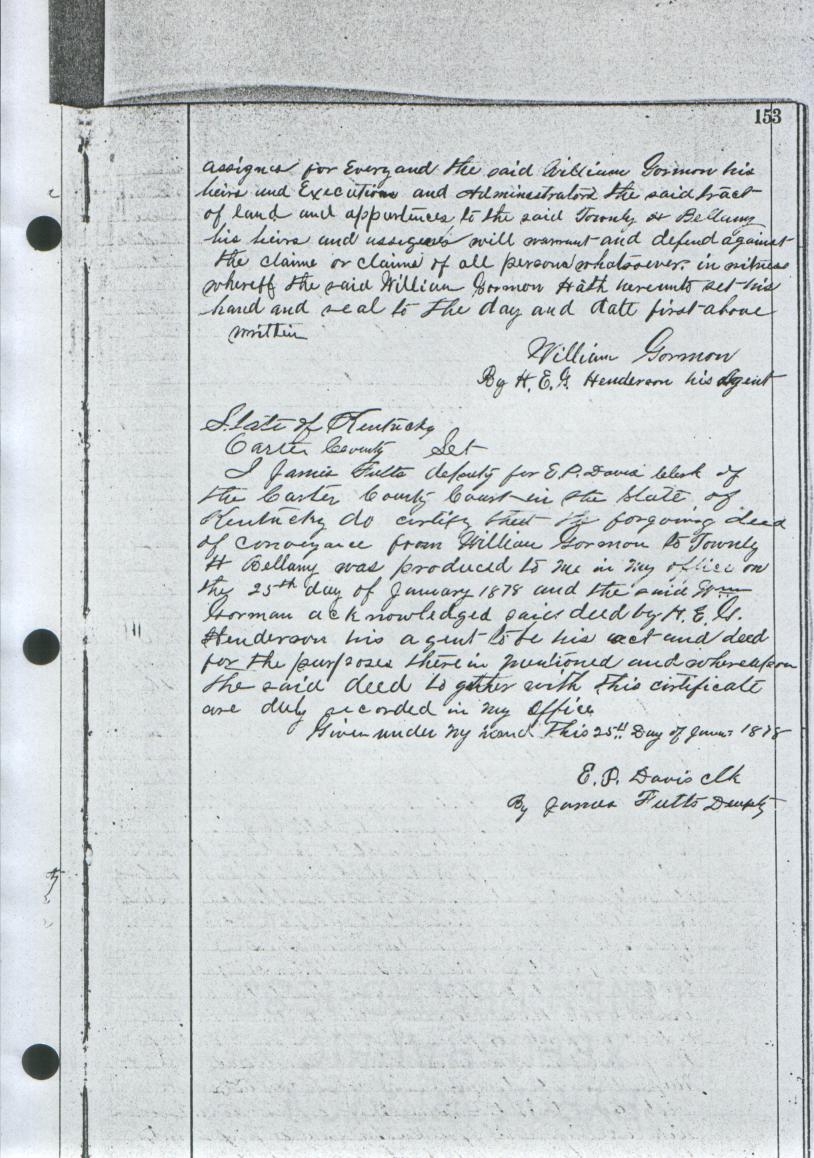 153
assignes for Every and the said William Gormon his
heirs and Executions and Administrators the said tract
of land and appurtinces to the said Townly H Bellamy
his heirs and assignes will warrant and defend against
the claime or claime of all persons whatsoever. in witness
whereff the said William Gormon Hath hereunto set his
hand and seal to the day and date first above
written
William Gormon
By H. E. G. Henderson his Agent
State of Kentucky
Carter County Sct
I James Fults deputy for E. P. Davis Clerk of
the Carter County Court in the State of
Kentucky do certify that the forgoing deed
of conveyance from William Gormon to Townly
H Bellamy was produced to me in my office on
the 25th day of January 1878 and the said Wm
Gorman acknowledged said deed by H. E. G.
Henderson his agent to be his act and deed
for the purposes there in mentioned and whereupon
the said deed to gether with this certificate
are duly recorded in my office
Given under my hand This 25th Day of Janu 1878
E. P. Davis clk
By James Fults Deupty